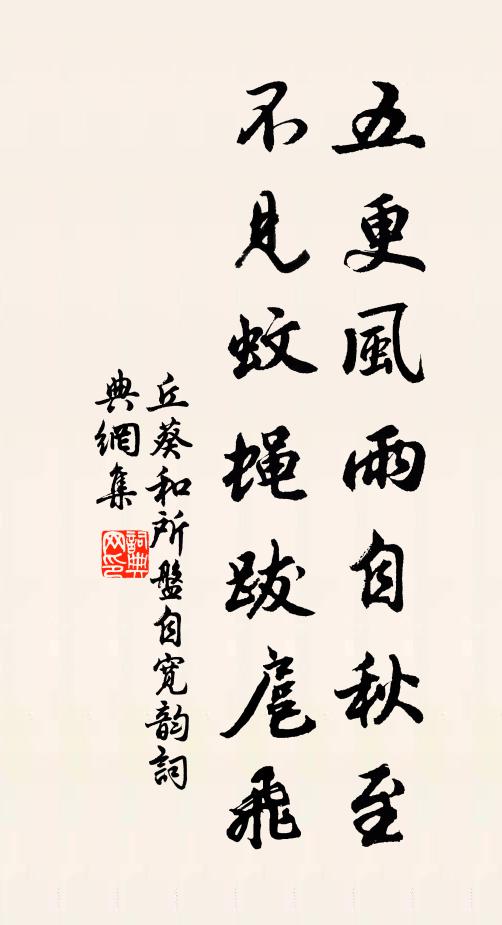 五更風雨自秋至
不見蚊蝇跋扈飛
丘葵和所盤自寬韵詞
典網集
詞典
网印